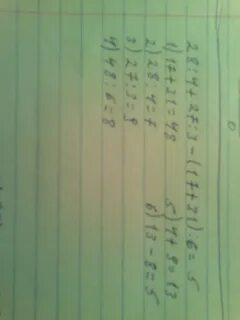 28:4+27:3-((17+31):6=5
1) 17+31=48 5) 4+9=13
2) 28:4=7 6) 13-8=5
3) 27:3=9
4) 48:6=8